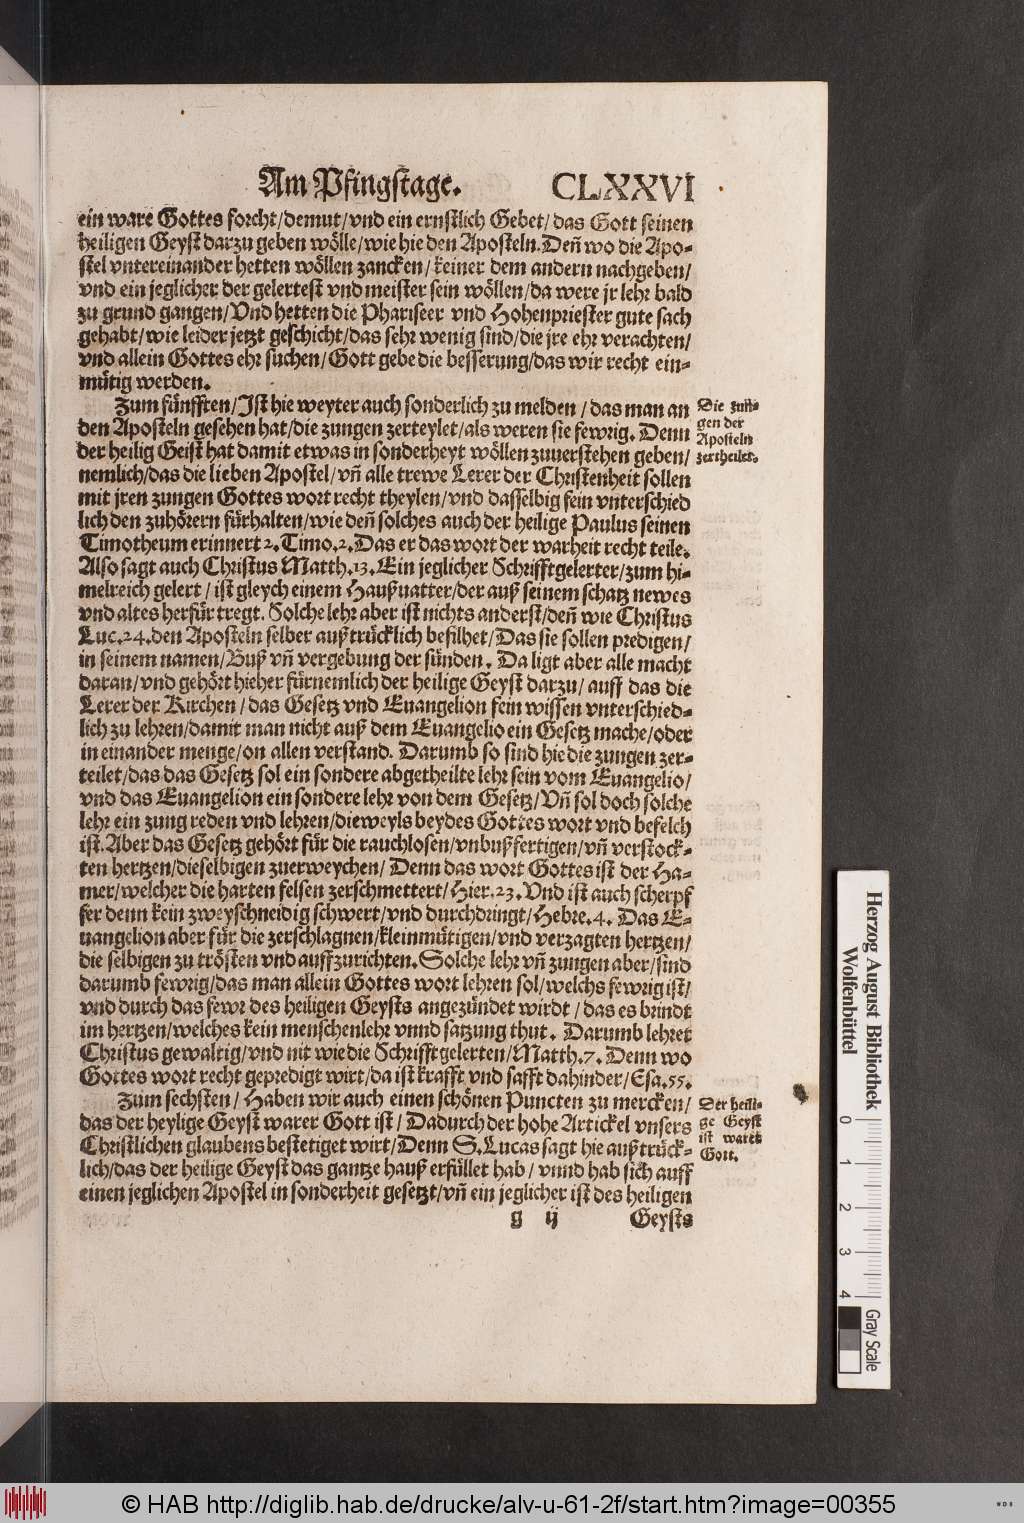 Am Pfingstage. CLXXVI
ein ware Gottes forcht/demut/vnd ein ernstlich Gebet/das Gott seinen
heiligen Geyst darzu geben wölle/wie hie den Aposteln. Deñ wo die Apo-
stel vntereinander hetten wöllen zancken/keiner dem andern nachgeben/
vnd ein jeglicher der gelertest vnd meister sein wöllen/da were jr lehr bald
zu grund gangen/Vnd hetten die Phariseer vnd Hohenpriester gute sach
gehabt/wie leider jetzt geschicht/das sehr wenig sind/die jre ehr verachten/
vnd allein Gottes ehr suchen/Gott gebe die besserung/das wir recht ein-
mütig werden.
Zum fünfften/Ist hie weyter auch sonderlich zu melden/das man an
den Aposteln gesehen hat/die zungen zerteylet/als weren sie fewrig. Denn
der heilig Geist hat damit etwas in sonderheyt wöllen zuuerstehen geben/
nemlich/das die lieben Apostel/vñ alle trewe Lerer der Christenheit sollen
mit jren zungen Gottes wort recht theylen/vnd dasselbig fein vnterschied
lich den zuhörern fürhalten/wie deñ solches auch der heilige Paulus seinen
Timotheum erinnert 2. Timo. 2. Das er das wort der warheit recht teile.
Also sagt auch Christus Matth. 13. Ein jeglicher Schrifftgelerter/zum hi-
melreich gelert/ist gleych einem Haußuatter/der auß seinem schatz newes
vnd altes herfür tregt. Solche lehr aber ist nichts anderst/deñ wie Christus
Luc. 24. den Aposteln selber außtrücklich befilhet/Das sie sollen predigen/
in seinem namen/Buß vñ vergebung der sünden. Da ligt aber alle macht
daran/vnd gehört hieher fürnemlich der heilige Geyst darzu/auff das die
Lerer der Kirchen/das Gesetz vnd Euangelion fein wissen vnterschied-
lich zu lehren/damit man nicht auß dem Euangelio ein Gesetz mache/oder
in einander menge/on allen verstand. Darumb so sind hie die zungen zer-
teilet/das das Gesetz sol ein sondere abgetheilte lehr sein vom Euangelio/
vnd das Euangelion ein sondere lehr von dem Gesetz/Vñ sol doch solche
lehr ein zung reden vnd lehren/dieweyls beydes Gottes wort vnd befelch
ist. Aber das Gesetz gehört für die rauchlosen/vnbußfertigen/vñ verstock-
ten hertzen/dieselbigen zuerweychen/Denn das wort Gottes ist der Ha-
mer/welcher die harten felsen zerschmettert/Hier. 23. Vnd ist auch scherpf
fer denn kein zweyschneidig schwert/vnd durchdringt/Hebre. 4. Das E-
uangelion aber für die zerschlagnen/kleinmütigen/vnd verzagten hertzen/
die selbigen zu trösten vnd auffzurichten. Solche lehr vñ zungen aber/sind
darumb fewrig/das man allein Gottes wort lehren sol/welchs fewrig ist/
vnd durch das fewr des heiligen Geysts angezündet wirdt/das es brindt
im hertzen/welches kein menschenlehr vnnd satzung thut. Darumb lehret
Christus gewaltig/vnd nit wie die Schrifftgelerten/Matth. 7. Denn wo
Gottes wort recht gepredigt wirt/da ist krafft vnd safft dahinder/Esa. 55.
Zum sechsten/Haben wir auch einen schönen Puncten zu mercken/
das der heylige Geyst warer Gott ist/Dadurch der hohe Artickel vnsers
Christlichen glaubens bestetiget wirt/Denn S. Lucas sagt hie außtrück-
lich/das der heilige Geyst das gantze hauß erfüllet hab/vnnd hab sich auff
einen jeglichen Apostel in sonderheit gesetzt/vñ ein jeglicher ist des heiligen
g ij Geysts
Die zun-
gen der
Aposteln
zertheilet.
Der heili-
ge Geyst
ist warer
Gott.
Herzog August Bibliothek
Wolfenbüttel
0 1 2 3 4
Gray Scale
© HAB http://diglib.hab.de/drucke/alv-u-61-2f/start.htm?image=00355